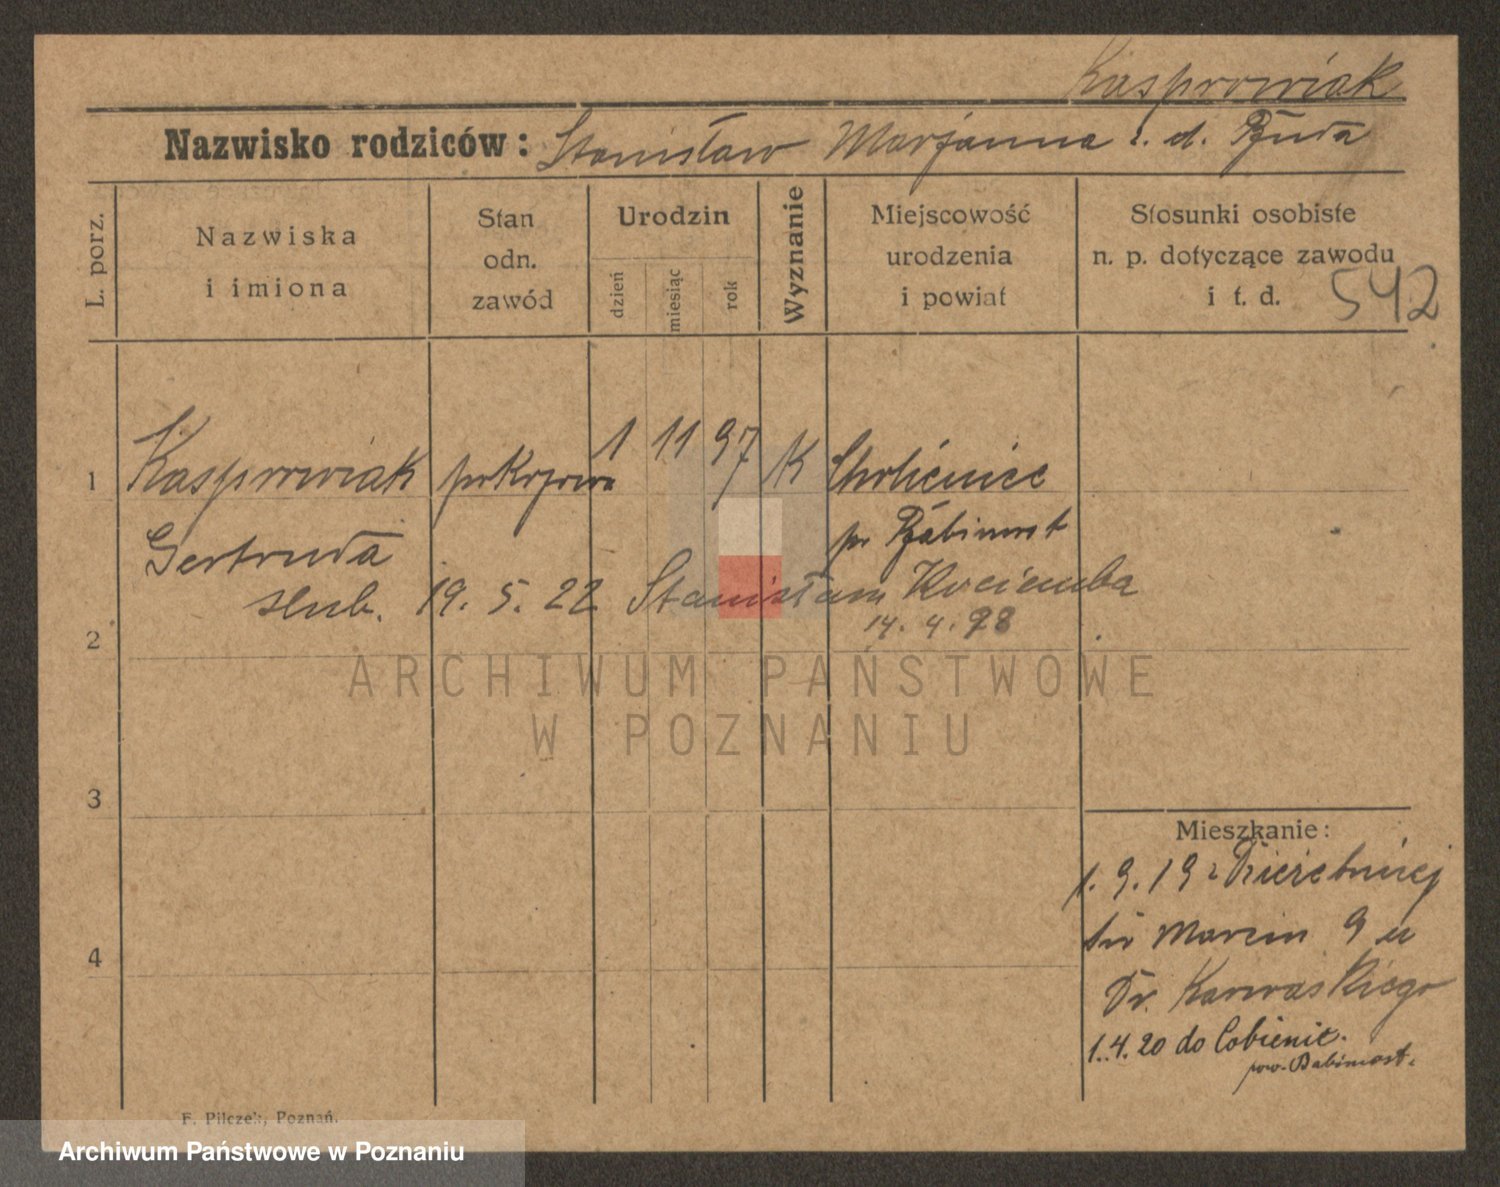 Kasprowiak
Nazwisko rodziców: Stanisław Marjanna z. d. Buda
L. porz.
Nazwiska
i imiona
Stan
odn.
zawód
Urodzin
dzień
miesiąc
rok
Wyznanie
Miejscowość
urodzenia
i powiat
Stosunki osobiste
n. p. dotyczące zawodu
i t. d.
542
1 Kasprowiak pokojowa 1 11 97 K
Gertruda po Babimost
slub. 19. 5. 22 Stanisław Kociemba
14. 4. 98
2
ARCHIWUM PAŃSTWOWE
W POZNANIU
3
4
Mieszkanie:
1. 9. 19 z
św Marcin 9 u
Dr. Karwaskiego
1.4.20 do Cobienic.
pow. Babimost.
F. Pilczek, Poznań.
Archiwum Państwowe w Poznaniu